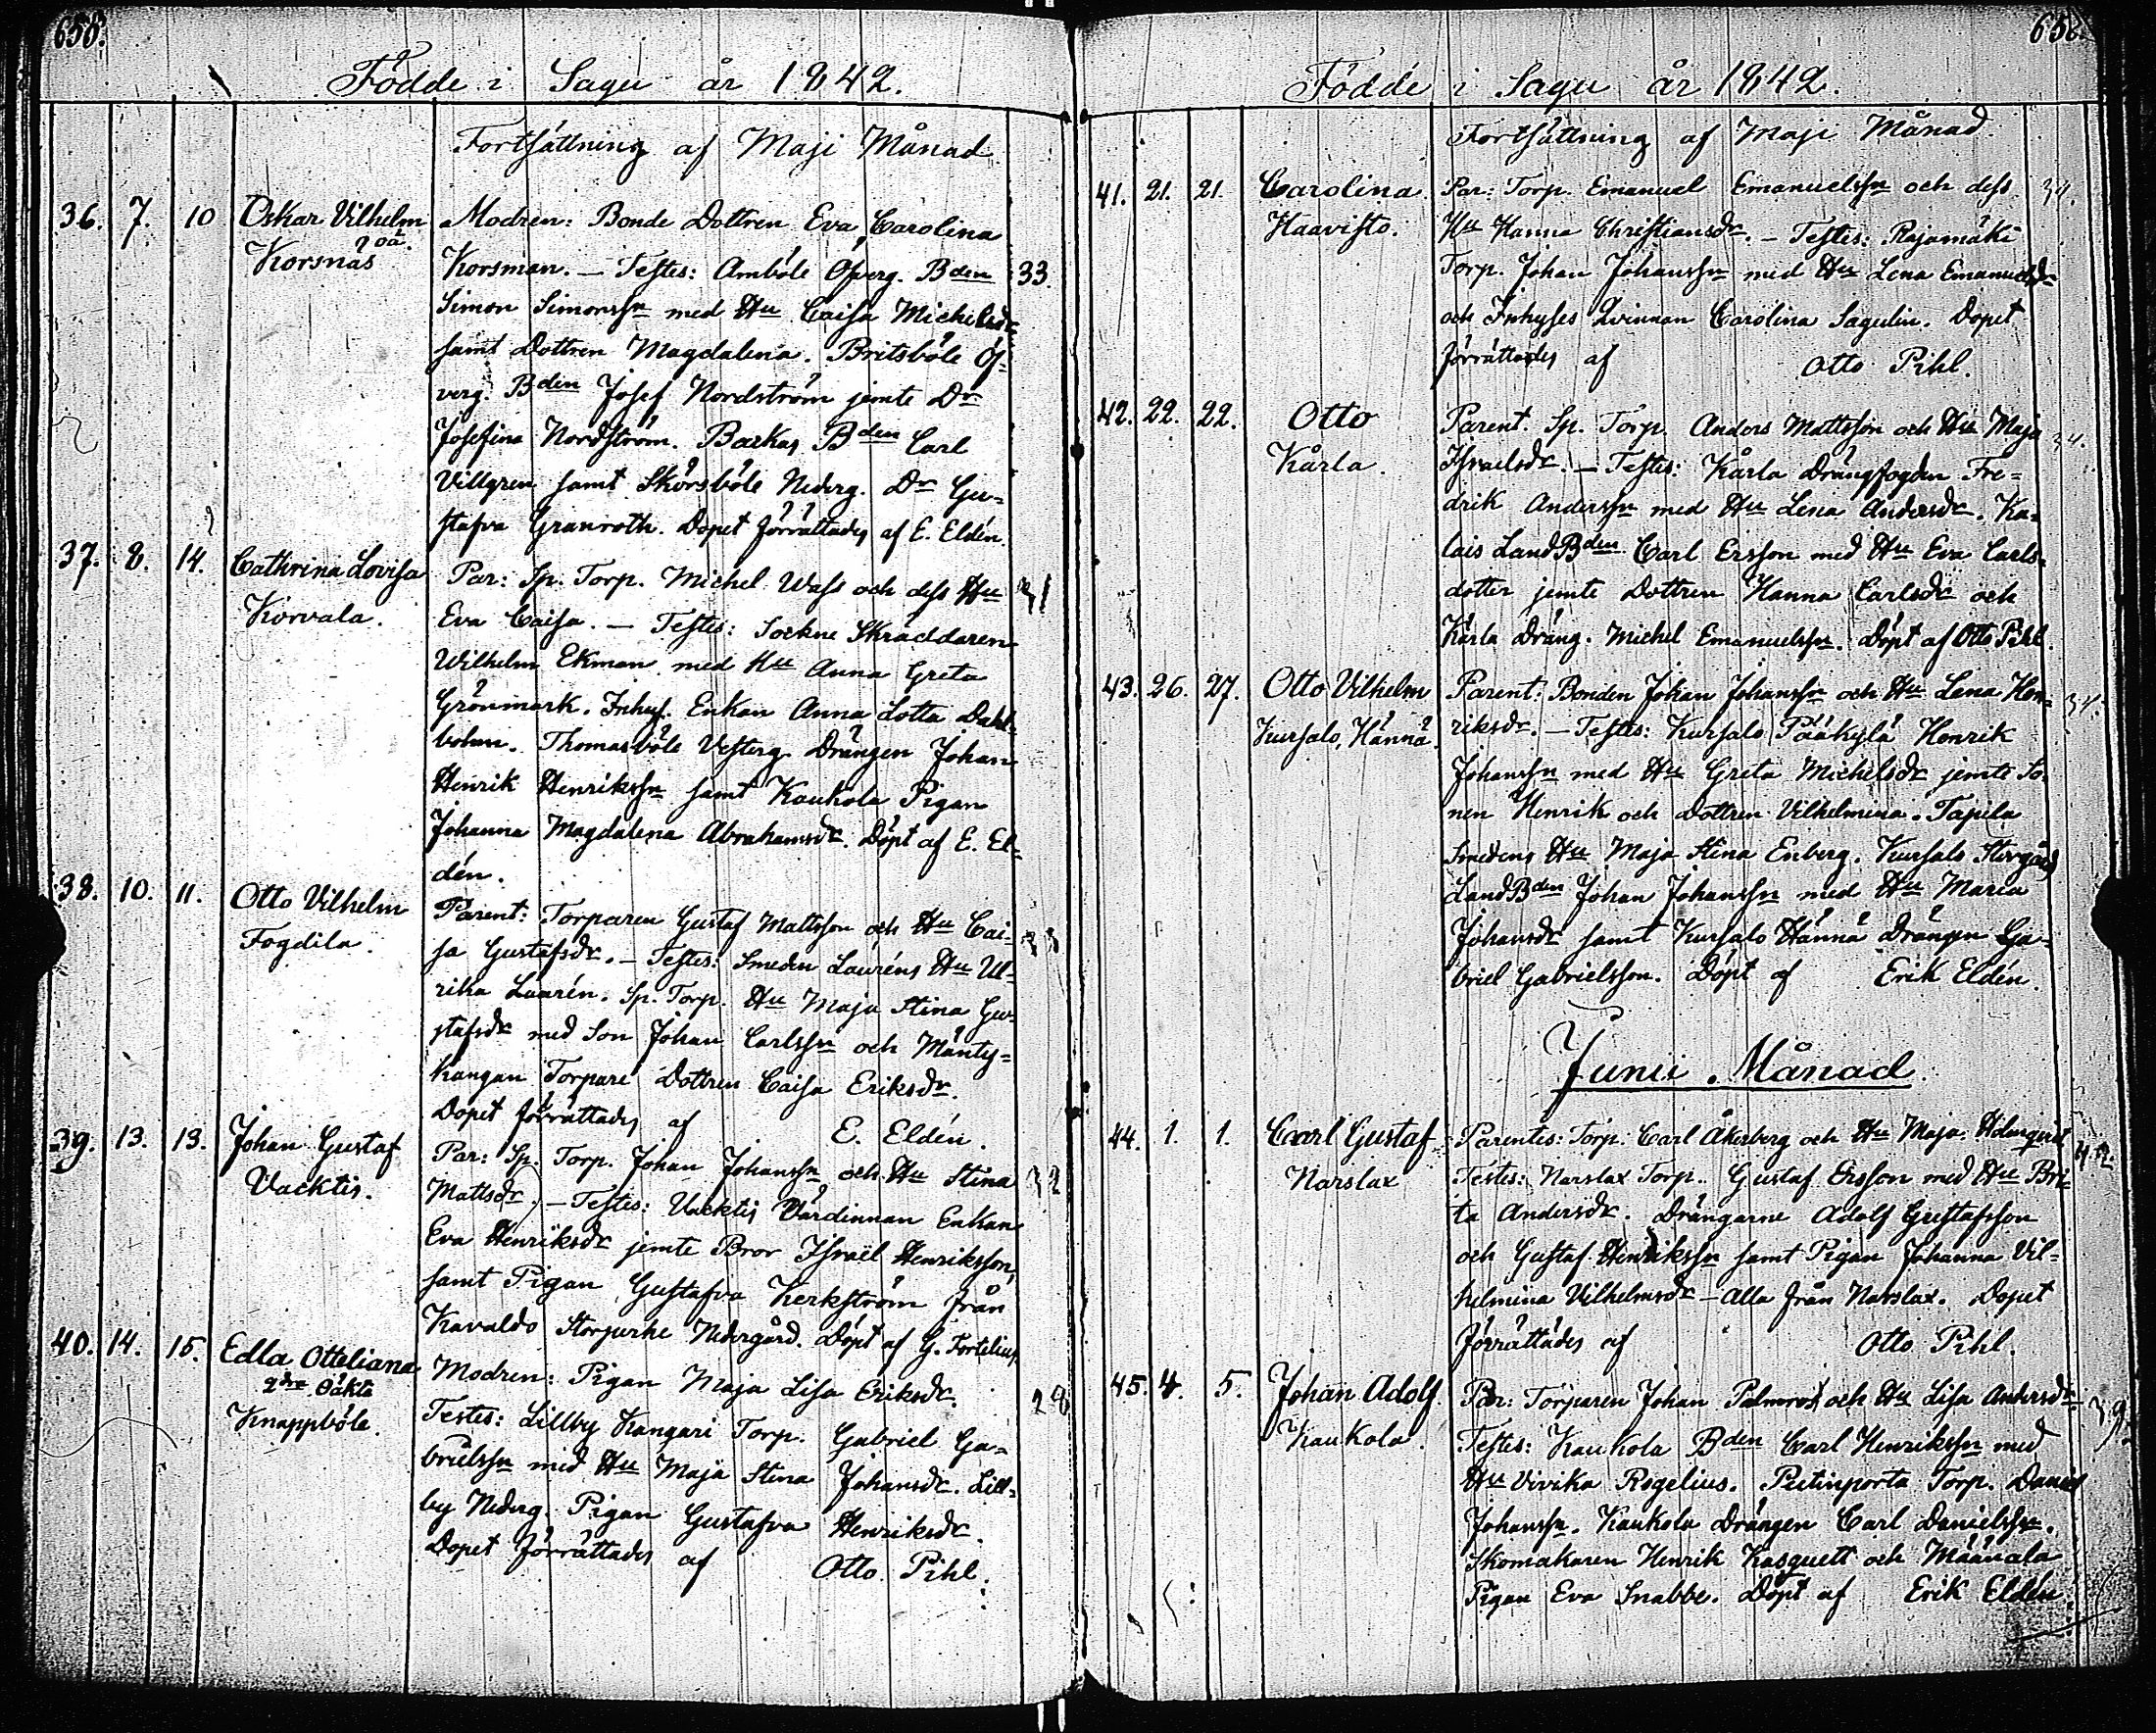 658.
Födde i Sagu år 1842.
Fortsättning af Maji Månad
36. 7. 10 Oskar Vilhelm oä. Korsnäs
Modren: Bonde Dottren Eva Carolina
Korsman. — Testes: Ambóle Öfverg. Bden 33.
Simon Simonssn med Hu Caisa Michelsdr
samt Dottren Magdalena. Britsböle Öf-
verg. Bden Josef Nordström jemte Dr
Josefina Nordström. Barkas Bden Carl
Villgren samt Skörsböle Nederg. Dr Gu-
stafva Granroth. Dopet förrättades af E. Eldén.
37. 8. 14. Cathrina Lovisa Korvala.
Par: Sp. Torp. Michel Wass och dess Hu 31
Eva Caisa. — Testes: Sockne Skräddaren
Wilhelm Ekman med Hu Anna Greta
Grönmark. Inhys. Enkan Anna Lotta Dahl-
bohm. Thomasböle Vesterg. Drängen Johan
Henrik Henrikssn samt Kaukola Pigan
Johanna Magdalena Abrahamsdr. Döpt af E. El-
dén.
38. 10. 11. Otto Vilhelm Fogdila.
Parent: Torparen Gustaf Mattsson och Hu Cai-
sa Gustafsdr. — Testes: Smeden Lauréns Hu Ul-
rika Laurén. Sp. Torp. Hu Maja Stina Gu-
stafsdr med Son Johan Carlssn och Mänty-
kangan Torpare Dottren Caisa Eriksdr.
Dopet förrättades af E. Eldén.
39. 13. 13. Johan Gustaf Vacktis.
Par: Sp. Torp. Johan Johanssn och Hu Stina 32
Mattsdr. — Testes: Vacktis Värdinnan Enkan
Eva Henriksdr jemte Bror Israël Henriksson,
samt Pigan Gustafva Kerkström från
Kavaldo Storpurke Nedergård. Döpt af G. Fortelius.
40. 14. 15. Edla Otteliana 2dra Oäkta Knappböle.
Modren: Pigan Maja Lisa Eriksdr. 28
Testes: Lillby Kangari Torp. Gabriel Ga-
brielssn med Hu Maja Stina Johansdr. Lill-
by Nederg. Pigan Gustafva Henriksdr.
Dopet förrättades af Otto Pihl.
Födde i Sagu år 1842.
Fortsättning af Maji Månad.
41. 21. 21. Carolina Haavisto.
Par: Torp. Emanuel Emanuelssn och dess 34.
Hu Hanna Christiansdr. — Testes: Rajamäki
Torp. Johan Johanssn med Hu Lena Emanuelsdr
och Inhyses Qvinnan Carolina Sagulin. Dopet
förrättades af Otto Pihl.
42. 22. 22. Otto Kårla.
Parent. Sp. Torp. Anders Mattsson och Hu Maja 34.
Israelsdr. — Testes: Kårla Drängfogden Fre-
drik Anderssn med Hu Lena Andersdr. Ka-
lais LandBden Carl Ersson med Hu Eva Carls-
dotter jemte Dottren Hanna Carlsdr och
Kårla Dräng. Michel Emanuelssn. Döpt af Otto Pihl.
43. 26. 27. Otto Vilhelm Kursalo, Hännä.
Parent: Bonden Johan Johanssn och Hu Lena Hen- 34.
riksdr. — Testes: Kursalo Pääkylä Henrik
Johanssn med Hu Greta Michelsdr jemte So-
nen Henrik och Dottren Vilhelmina. Tapila
Smedens Hu Maja Stina Enberg. Kursalo Storgård
LandBden Johan Johanssn med Hu Maria
Johansdr samt Kursalo Hännä Drängen Ga-
briel Gabrielsson. Döpt af Erik Eldén.
Junii Månad.
44. 1. 1. Carl Gustaf Narslax
Parentes: Torp. Carl Åkerberg och Hu Maja Holmqvist
Testes: Narslax Torp. Gustaf Ersson med Hu Bri-
ta Andersdr. Drängarne Adolf Gustafsson
och Gustaf Henrikssn samt Pigan Johanna Vil-
helmina Vilhelmsdr — Alla från Narslax. Dopet
förrättades af Otto Pihl.
45. 4. 5. Johan Adolf Kaukola.
Par: Torparen Johan Palmros och Hu Lisa Andersdr
Testes: Kaukola Bden Carl Henrikssn med
Hu Vivika Rogelius. Peitinporta Torp. Daniel
Johanssn. Kaukola Drängen Carl Danielssn.
Skomakaren Henrik Kasquett och Määnala
Pigan Eva Snabbe. Döpt af Erik Eldén.